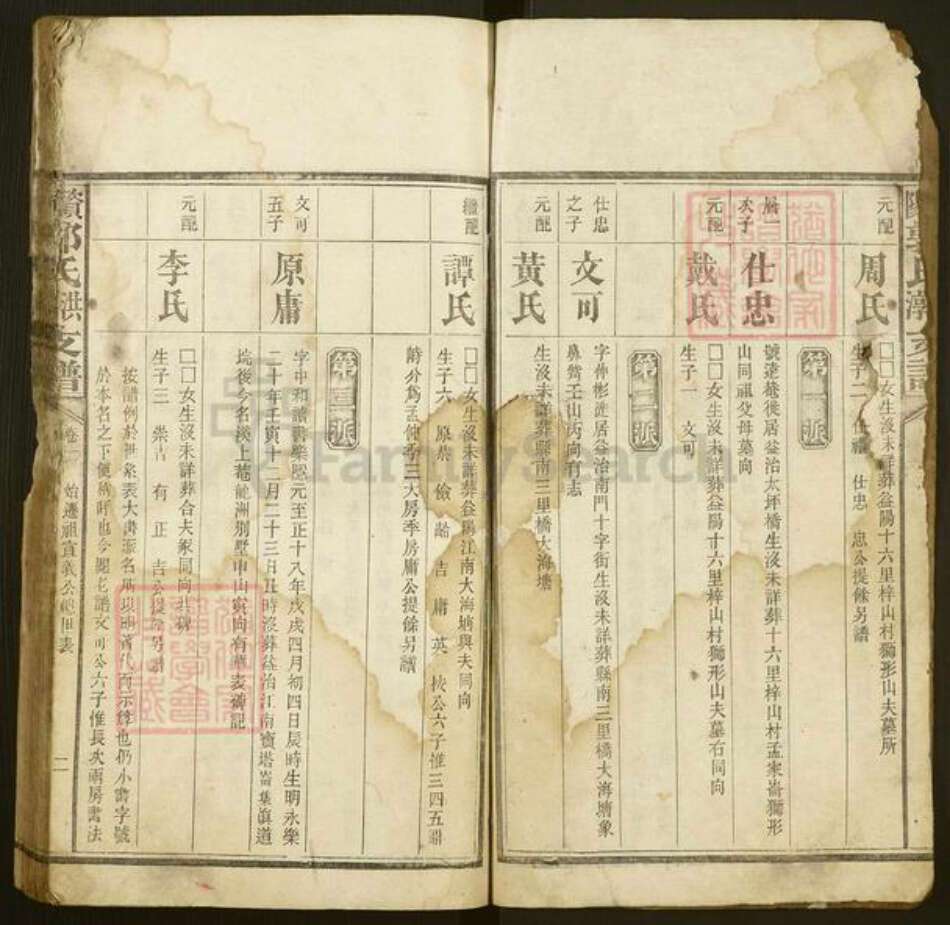 元配
周氏
□□女生沒未詳葬益陽十六里梓山村獅形山夫墓所
生子二 仕禮 仕忠 忠公提餘另譜
第一派
次子
仕忠
號達菴徙居益治太坪橋生沒未詳葬十六里梓山村孟家崙獅形
山同祖父母墓向
元配
戴氏
□□女生沒未詳葬益陽十六里梓山村獅形山夫墓右同向
生子一 文可
第二派
仕忠
之子
文可
字仲彬進居益治南門十字街生沒未詳葬縣南三里橋大海塘象
鼻觜壬山丙向有志
元配
黃氏
生沒未詳葬縣南三里橋大海塘
繼配
譚氏
□□女生沒未詳葬益陽江南大海塘與夫同向
生子六 原 儉 吉 庸 英 公六子惟三四五
時分為孟仲季三大房季房庸公提餘另譜
第三派
文可
五子
原庸
字中和讀書樂 元至正十八年戊戌四月初四日辰時生明永樂
二十年壬寅十二月二十三日丑時沒葬益治江南寶塔崙 道
後今名溪上菴龍洲別墅申山寅向有華表碑記
元配
李氏
□□女生沒未詳葬合夫冢同向共碑
生子三 崇吉 有 正 吉公提餘另譜
按譜例於世系表大書派名所以 代而示 也仍小書字號
於本名之下便 也今 老譜文可公六子惟長次兩房書法
資郭氏洪支譜
卷一 始遷祖 公 世表
二
FamilySearch